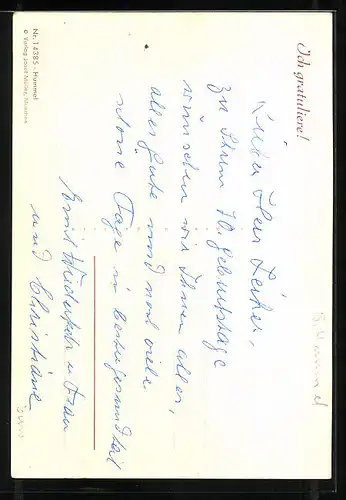 Ich gratuliere!
Lieber Herr
zu Ihrem 70. Geburtstage
wünschen wir Ihnen alles,
alles Gute und noch viele
schöne Tage in bester Gesundheit
Emil u. Frau
und Christiane
Nr. 14385 - Hummel
© Verlag Josef Müller, München
B. Hummel